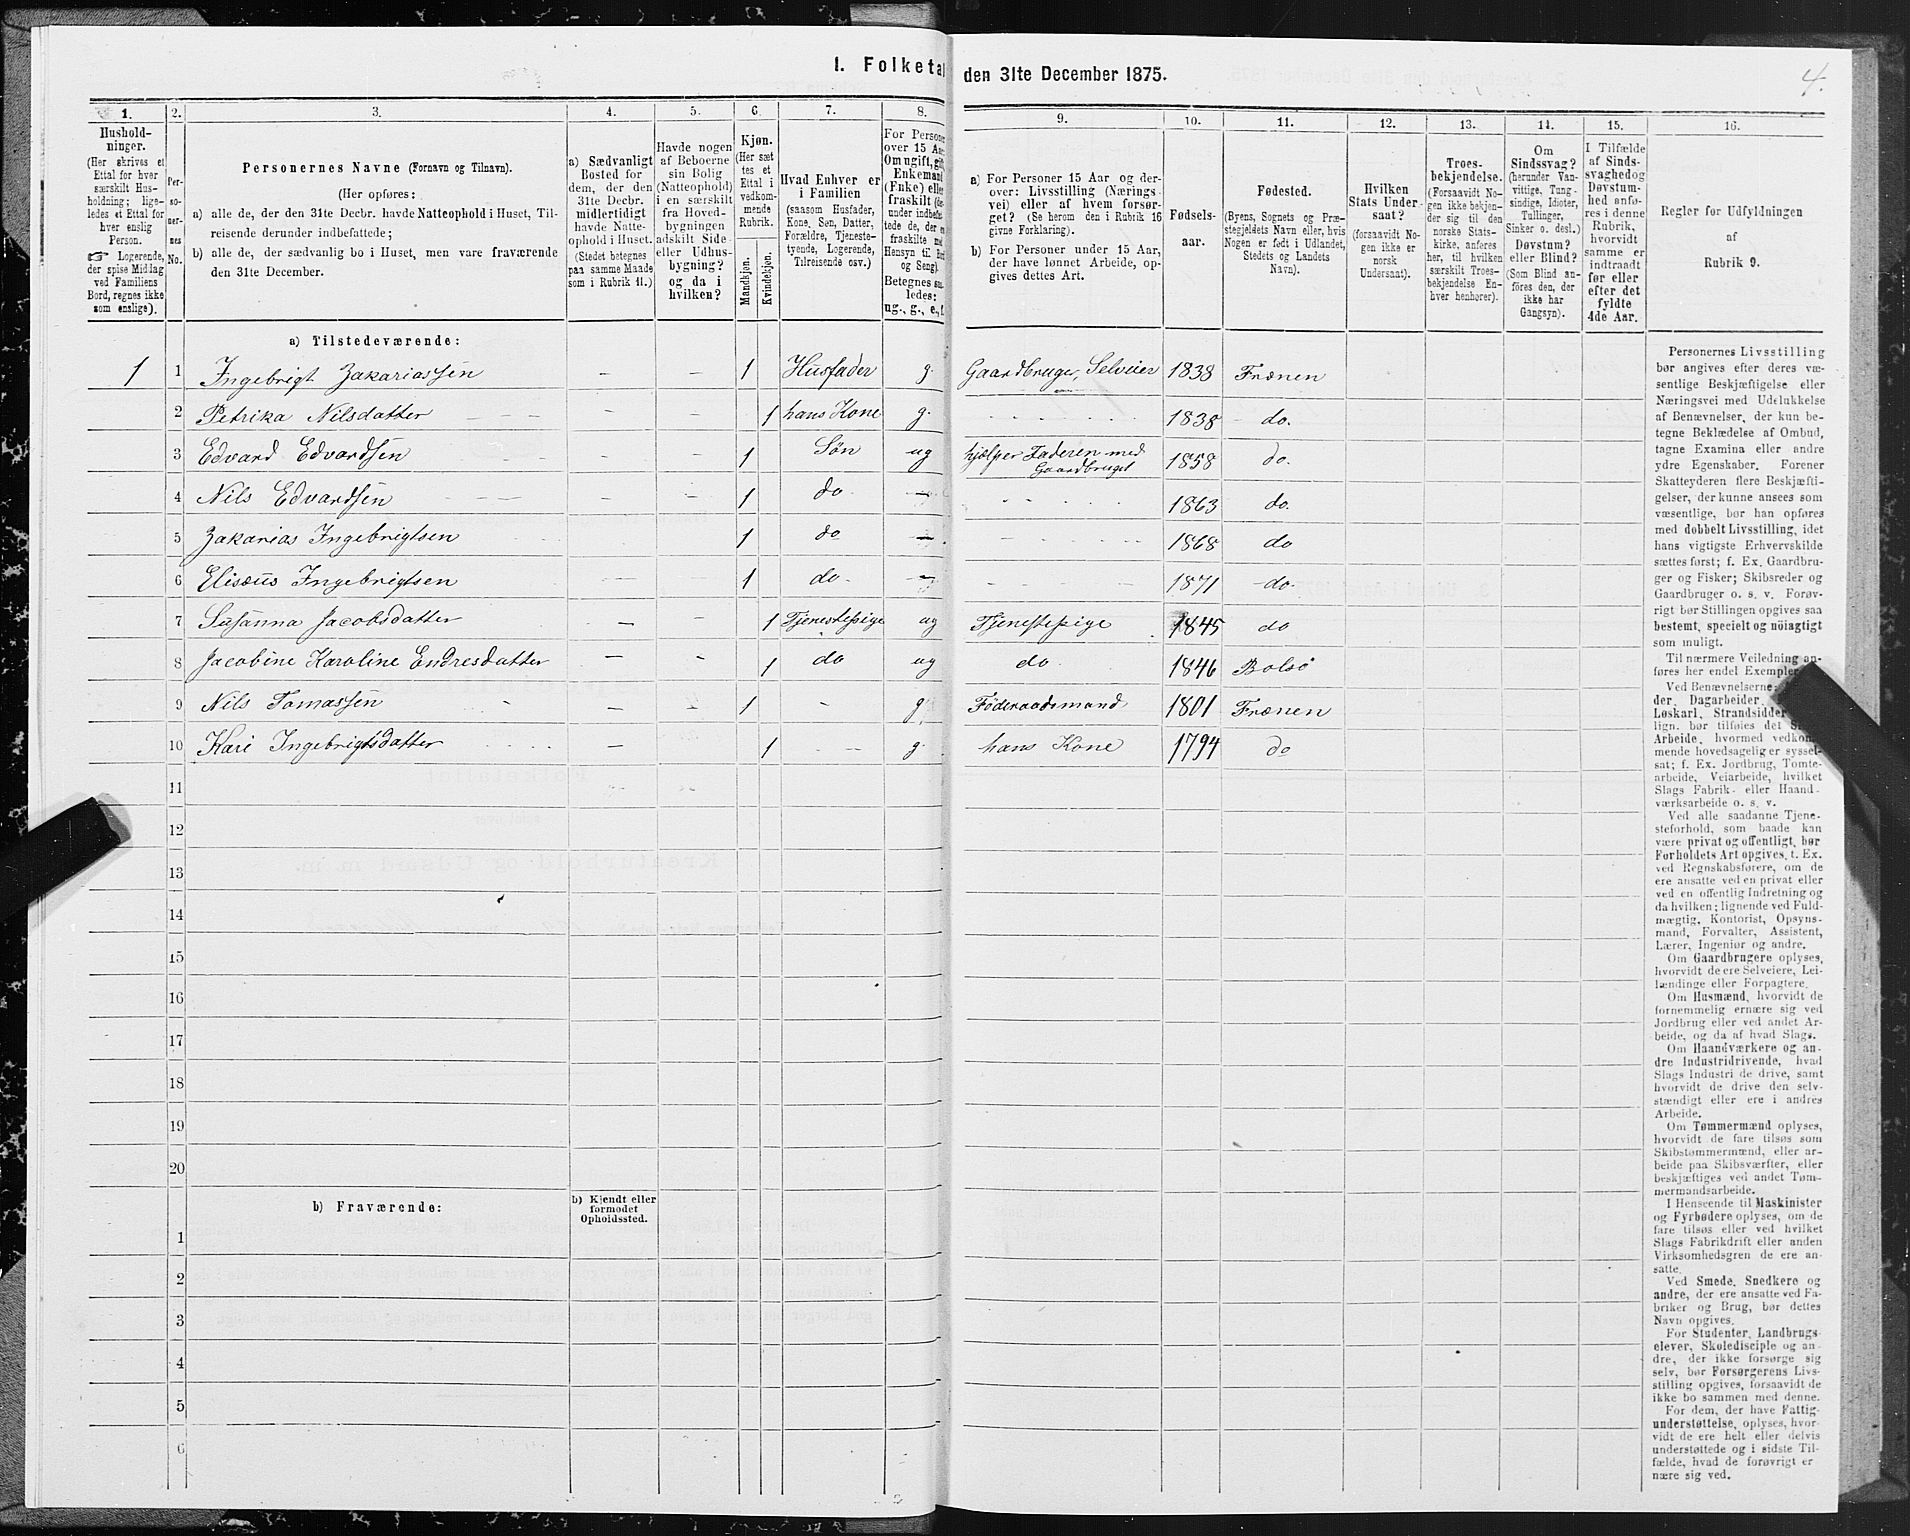 I. Folketal den 31te December 1875.
4.
1.
Hushold-
ninger.
(Her skrives et
Ettal for hver
særskilt Hus-
holdning; lige-
ledes et Ettal for
hver enslig
Person.
☞ Logerende,
der spise Middag
ved Familiens
Bord, regnes ikke
som enslige).
2.
Per-
so-
ner-
nes
No.
3.
Personernes Navne (Fornavn og Tilnavn).
(Her opføres:
a) alle de, der den 31te Decbr. havde Natteophold i Huset, Til-
reisende derunder indbefattede;
b) alle de, der sædvanlig bo i Huset, men vare fraværende
den 31te December.
4.
a) Sædvanligt
Bosted for
dem, der den
31te Decbr.
midlertidigt
havde Natte-
ophold i Huset.
(Stedet betegnes
paa samme Maade
som i Rubrik 11.)
5.
Havde nogen
af Beboerne
sin Bolig
(Natteophold)
i en særskilt
fra Hoved-
bygningen
adskilt Side-
eller Udhus-
bygning?
og da i
hvilken?
6.
Kjøn.
(Her sæt
tes et
Ettal i
vedkom-
mende
Rubrik.
Mandkjøn.
Kvindekjøn.
7.
Hvad Enhver er
i Familien
(saasom Husfader,
Kone, Søn, Datter,
Forældre, Tjeneste-
tyende, Logerende,
Tilreisende osv.)
8.
For Personer
over 15 Aar:
Om ugift, gift,
Enkemand
(Enke) eller
fraskilt (der-
under indbefat-
tede de, der ere
fraskilte med
Hensyn til Bord
og Seng).
Betegnes saa-
ledes:
ug., g., e., f.
9.
a) For Personer 15 Aar og der-
over: Livsstilling (Nærings-
vei) eller af hvem forsør-
get? (Se herom den i Rubrik 16
givne Forklaring).
b) For Personer under 15 Aar,
der have lønnet Arbeide, op-
gives dettes Art.
10.
Fødsels-
aar.
11.
Fødested.
(Byens, Sognets og Præ-
stegjeldets Navn eller, hvis
Nogen er født i Udlandet,
Stedets og Landets
Navn).
12.
Hvilken
Stats Under-
saat?
(forsaavidt No-
gen ikke er
norsk
Undersaat).
13.
Troes-
bekjendelse.
(Forsaavidt No-
gen ikke bekjen-
der sig til den
norske Stats-
kirke, anføres
her, til hvilken
særskilt Troes-
bekjendelse En-
hver henhører).
14.
Om
Sindssvag?
(herunder Van-
vittige, Tung-
sindige, Idioter,
Tullinger,
Sinker o. desl.)
Døvstum?
eller Blind?
(Som Blind an-
føres den, der
ikke har
Gangsyn).
15.
I Tilfælde
af Sinds-
svaghed og
Døvstum-
hed anfø-
res i denne
Rubrik,
hvorvidt
samme er
indtraadt
før eller
efter det
fyldte
4de Aar.
16.
Regler for Udfyldningen
af
Rubrik 9.
a) Tilstedeværende:
1 1 Ingebrigt Zakariassen - - 1 Husfader g. Gaardbruger, Selveier 1838 Frænen
2 Petrika Nilsdatter - - 1 hans Kone g. 1838 do.
3 Edvard Edvardsen - - 1 Søn ug hjelper Faderen med
Gaardbruget 1858 do.
4 Nils Edvardsen - - 1 do - 1863 do.
5 Zakarias Ingebrigtsen - - 1 do - 1868 do
6 Elisæus Ingebrigtsen - - 1 do - 1871 do.
7 Susanna Jacobsdatter - - 1 Tjenestepige ug Tjenestepige 1845 do
8 Jacobine Karoline Endresdatter - - 1 do ug do 1846 Bolsø
9 Nils Tomassen - - 1 - g. Føderaadsmand 1801 Frænen
10 Kari Ingebrigtsdatter - 1 - g. hans Kone 1794 do
11
12
13
14
15
16
17
18
19
20
b) Fraværende:
b) Kjendt eller
formodet
Opholdssted.
1
2
3
4
5
6
Personernes Livsstilling
bør angives efter deres væ-
sentlige Beskjæftigelse eller
Næringsvei med Udelukkelse
af Benævnelser, der kun be-
tegne Beklædelse af Ombud,
tagne Examina eller andre
ydre Egenskaber. Forener
Skatteyderen flere Beskjæfti-
gelser, der kunne ansees som
væsentlige, bør han opføres
med dobbelt Livsstilling, idet
hans vigtigste Erhvervskilde
sættes først; f. Ex. Gaardbru-
ger og Fisker; Skibsreder og
Gaardbruger o. s. v. Forøv-
rigt bør Stillingen opgives saa
bestemt, specielt og nöiagtigt
som muligt.
Til nærmere Veiledning an-
føres her endel Exempler
Ved Benævnelserne:
der, Dagarbeider,
Løskarl, Strandsidder
lign. bør tilføies det
Arbeide, hvormed vedkom-
mende hovedsagelig er syssel-
sat; f. Ex. Jordbrug, Tomte-
arbeide, Veiarbeide, hvilket
Slags Fabrik- eller Haand-
værksarbeide o. s. v.
Ved alle saadanne Tjene-
steforhold, som baade kan
være privat og offentligt, bør
Forholdets Art opgives, t. Ex.
ved Regnskabsførere, om de
ere ansatte ved en privat eller
ved en offentlig Indretning og
da hvilken; lignende ved Fuld-
mægtig, Kontorist, Opsyns-
mand, Forvalter, Assistent,
Lærer, Ingeniør og andre.
Om Gaardbrugere oplyses,
hvorvidt de ere Selveiere, Lei-
lændinge eller Forpagtere.
Om Husmænd, hvorvidt de
fornemmelig ernære sig ved
Jordbrug eller ved andet Ar-
beide, og da af hvad Slags.
Om Haandværkere og an-
dre Industridrivende, hvad
Slags Industri de drive, samt
hvorvidt de drive den selv-
stændigt eller ere i andres
Arbeide.
Om Tømmermænd oplyses,
hvorvidt de fare tilsøs som
Skibstømmermænd, eller ar-
beide paa Skibsværfter, eller
beskjæftiges ved andet Tøm-
mermandsarbeide.
I Henseende til Maskinister
og Fyrbødere oplyses, om de
fare tilsøs eller ved hvilket
Slags Fabrikdrift eller anden
Virksomhedsgren de ere an-
satte.
Ved Smede, Snedkere og
andre, der ere ansatte ved Fa-
briker og Brug, bør dettes
Navn opgives.
For Studenter, Landbrugs-
elever, Skoledisciple og an-
dre, der ikke forsørge sig
selv, bør Forsørgerens Livs-
stilling opgives, forsaavidt de
ikke bo sammen med denne.
For dem, der have Fattig-
understøttelse, oplyses, hvor-
vidt de ere helt eller delvis
understøttede og i sidste Til-
fælde, hvad de forøvrigt er
nære sig ved.